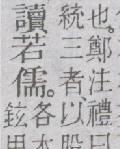 也。鄭注禮曰
統三者以
讀若儒。各本
鉉用